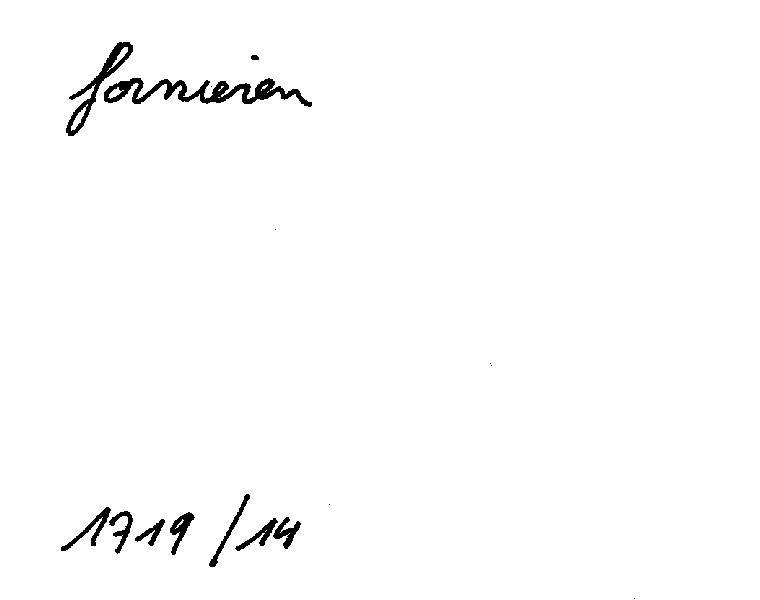 fornieren
1719/14